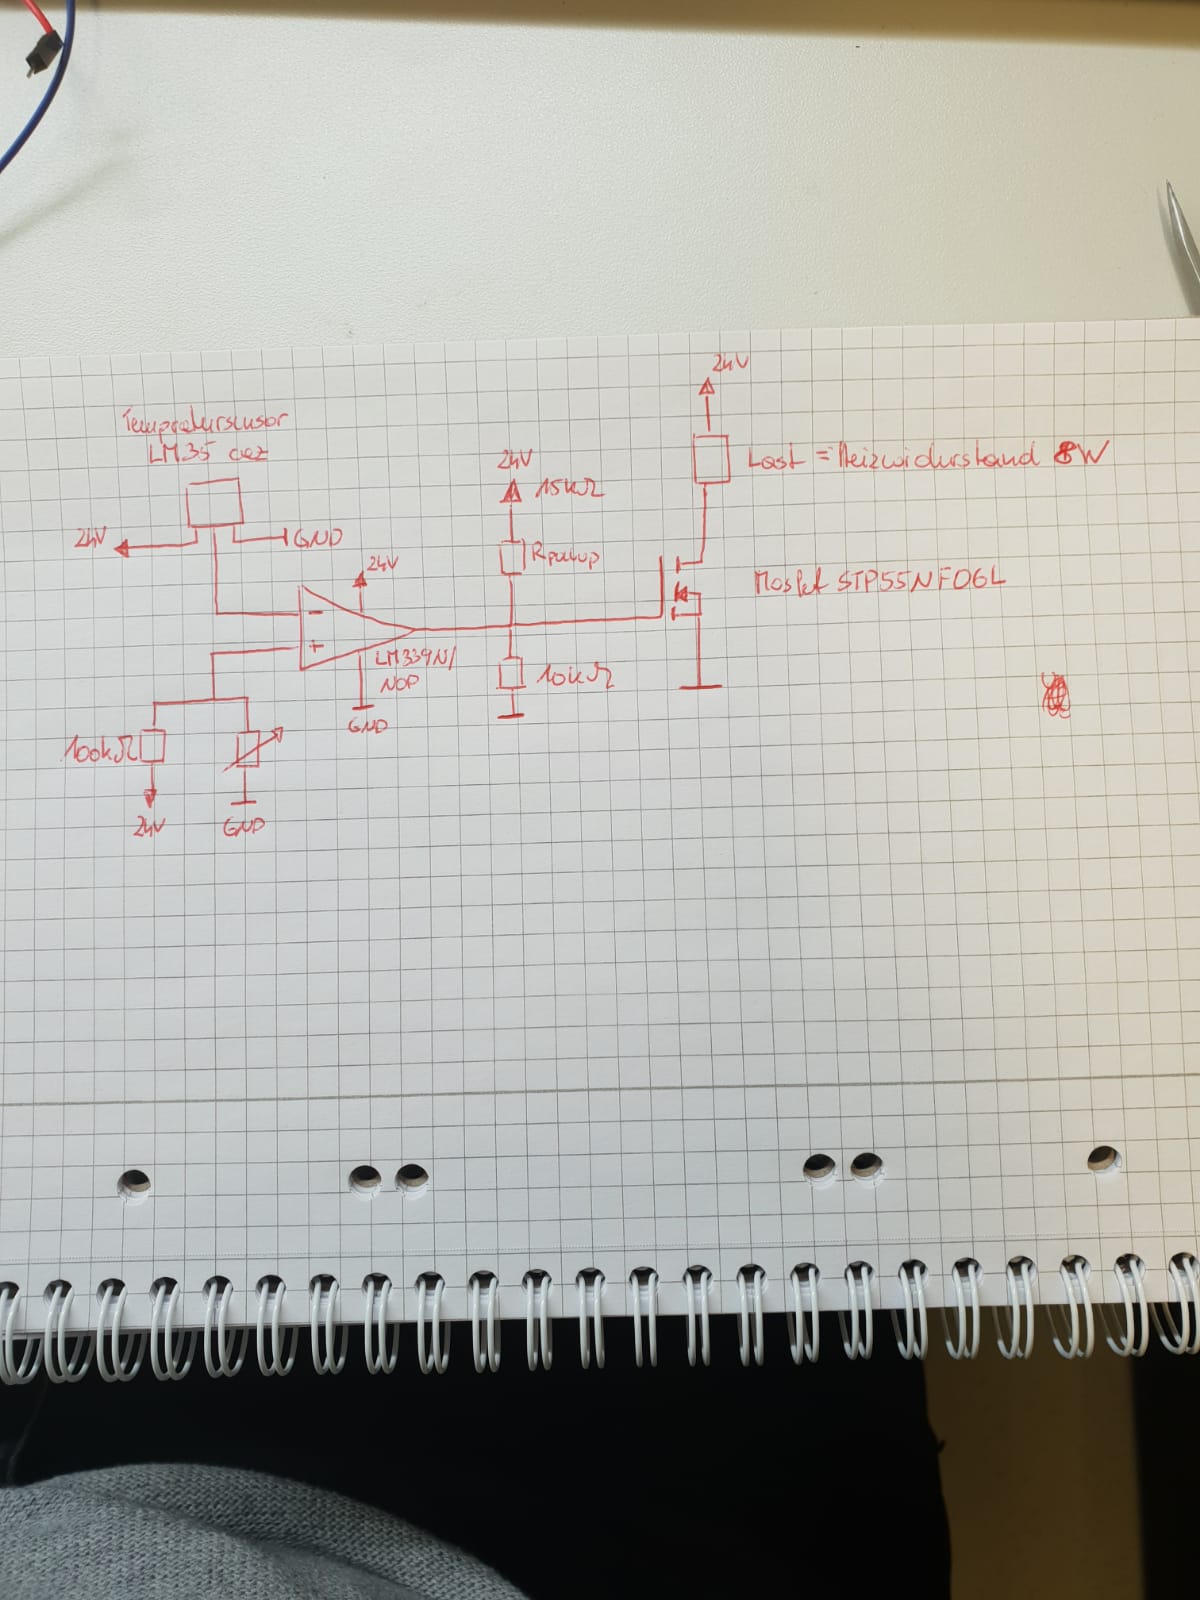 24V
Last = Heizwiderstand 8W
LM35
24V
15kΩ
24V
GND
24V
Rpullup
Mosfet STP55NF06L
-
+
LM339N/
NOP
10kΩ
GND
100kΩ
24V
GND